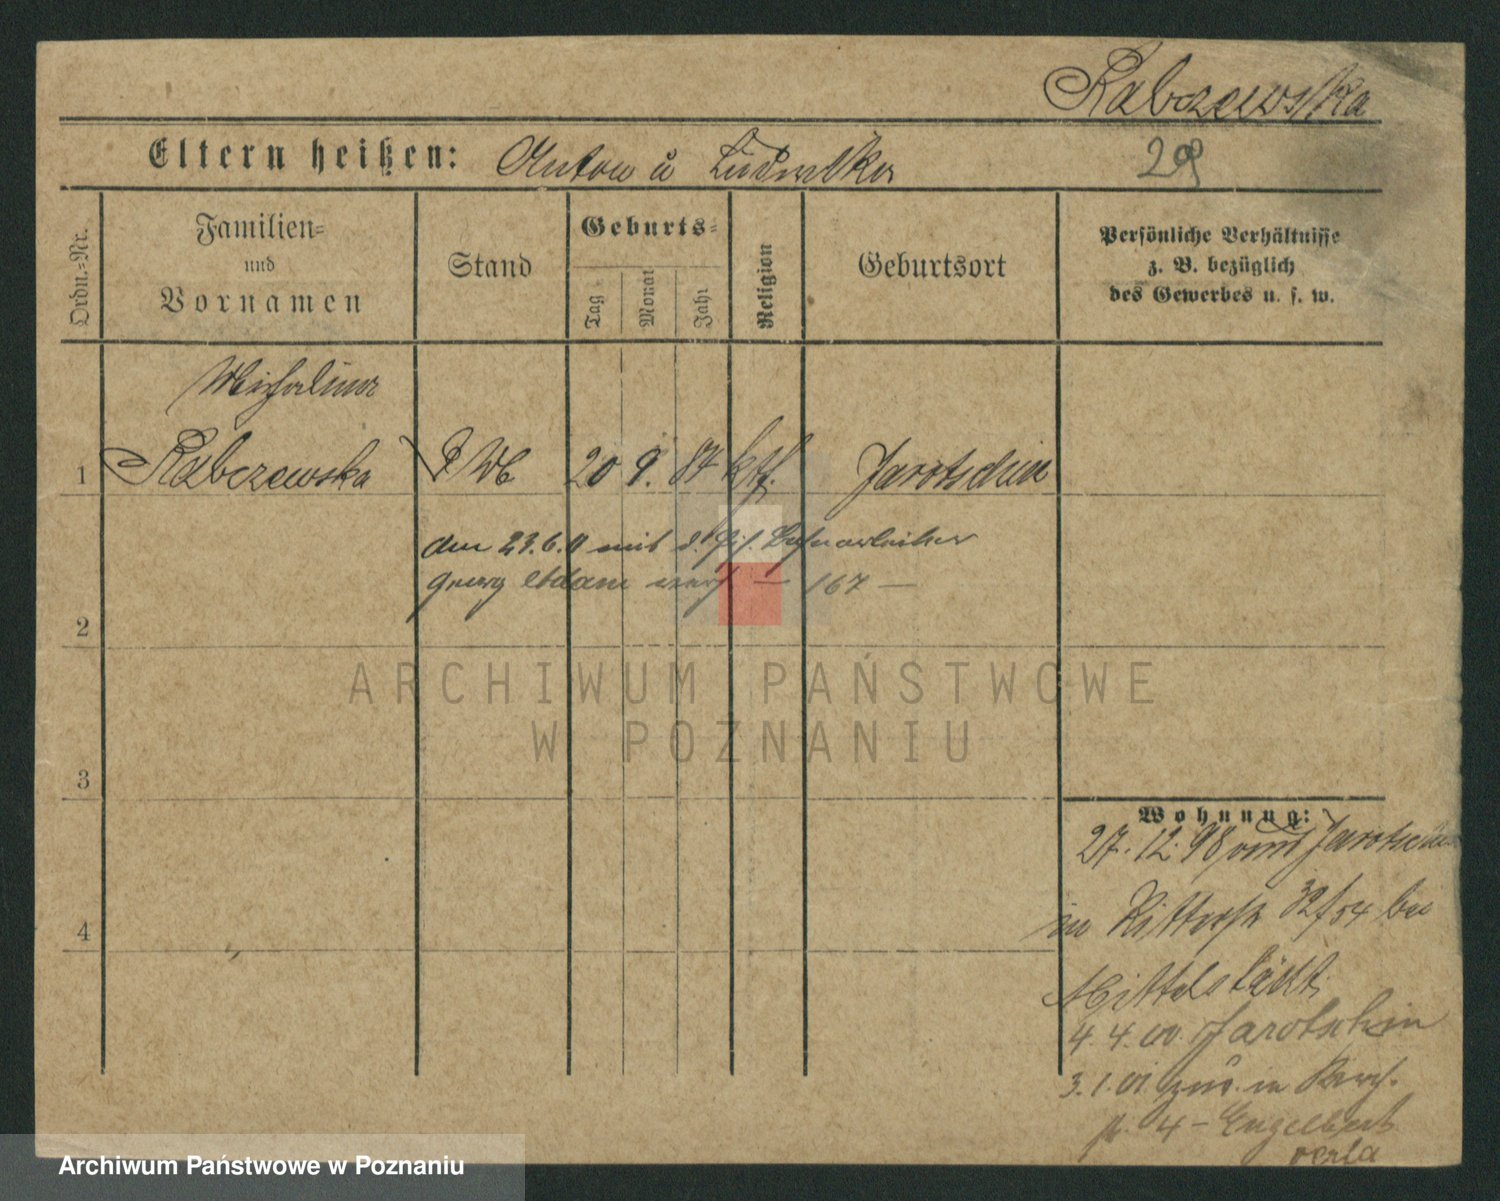 Rabczewska
Eltern heißen: Anton u Ludwika
29
Ordn.-Nr.
Familien-
und
Vornamen
Stand
Geburts-
Tag
Monat
Jahr
Religion
Geburtsort
Persönliche Verhältnisse
z. B. bezüglich
des Gewerbes u. s. w.
Michalina
1 Rabczewska 20 9. 87 kth. Jarotschin
den 23.6.11 mit d.
Georg Adam verh — 167 —
2
3
4
Wohnung:
27. 12. 98 von Jarotschin
in Ritterstr 32/34 bei
Mittelstädt
4. 4. 00. Jarotschin
3. 1. 01 zur. in
4 - Engelbert
ARCHIWUM PAŃSTWOWE
W POZNANIU
Archiwum Państwowe w Poznaniu